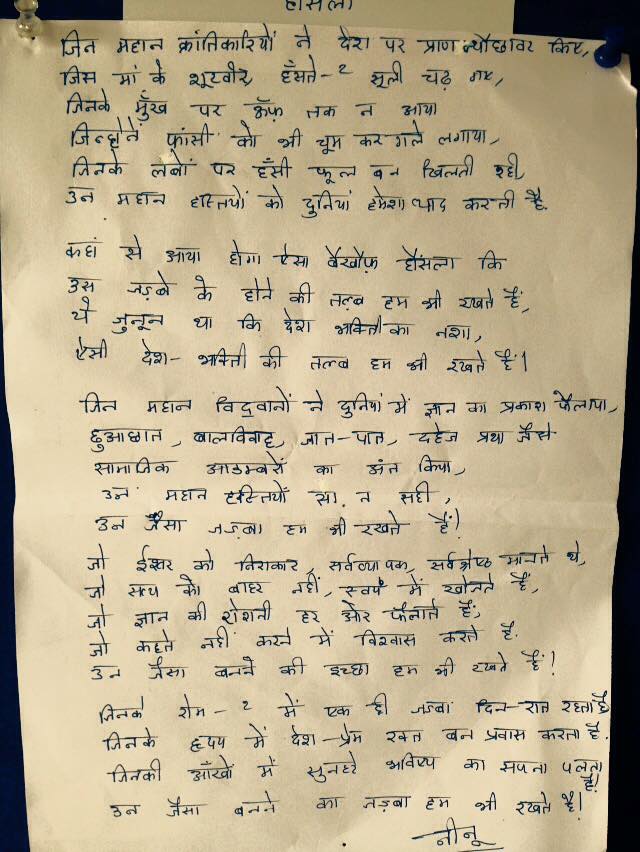 हौंसला
जिन महान क्रांतिकारियों ने देश पर प्राण न्यौछावर किए,
जिस मां के शूरवीर, हँसते-२ सूली चढ़ गए,
जिनके मुँख पर ऊँफ़ तक न आया
जिन्होंनें फांसी को भी चूम कर गले लगाया,
जिनके लबों पर हँसी फूल बन खिलती रही,
उन महान हस्तियों को दुनियां हमेशा याद करती है.
कहां से आया होगा ऐसा बेखौफ़ हौंसला कि
उस जज़्बे के होने की तलब हम भी रखते हैं,
ये जुनून था कि देश भक्ति का नशा,
ऐसी देश-भक्ती की तलब हम भी रखते हैं।
जिन महान विद्वानों ने दुनियां में ज्ञान का प्रकाश फैलाया,
छुआछात, बालविवाह, जात-पात, दहेज प्रथा जैसे
सामाजिक आडम्बरों का अंत किया,
उन महान हस्तियों सा न सही,
उन जैसा जज़्बा हम भी रखते हैं!
जो ईश्वर को निराकार, सर्वव्यापक, सर्वश्रेष्ठ मानते थे,
जो सत्य को बाहर नहीं, स्वयं में खोजते हैं,
जो ज्ञान की रोशनी हर ओर फैलाते हैं,
जो कहते नहीं करने में विश्वास करते है.
उन जैसा बनने की इच्छा हम भी रखते हैं!
जिनके रोम-२ में एक ही जज़्बा दिन-रात रहता है
जिनके हृदय में देश-प्रेम रक्त बन प्रवास करता है.
जिनकी आँखों में सुनहरे भविष्य का सपना पलता है!
उन जैसा बनने का जज़्बा हम भी रखते हैं!
नीनू